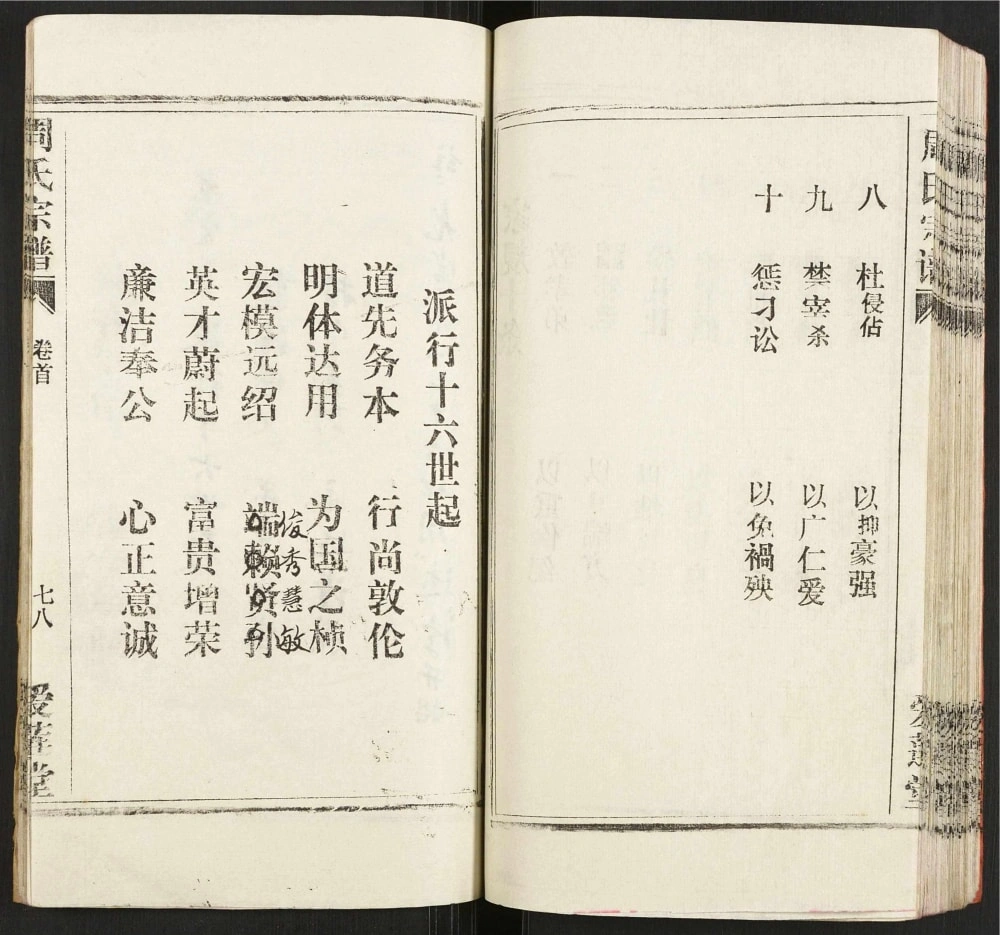 周氏宗谱
八 杜侵佔 以抑豪强
九 禁宰杀 以广仁爱
十 惩刁讼 以免禍殃
爱莲堂
派行十六世起
道先务本 行尚敦伦
明体达用 为国之桢
俊秀慧敏
宏模远绍 端赖贤孙
英才蔚起 富贵增荣
廉洁奉公 心正意诚
周氏宗谱
卷首
七八
爱莲堂